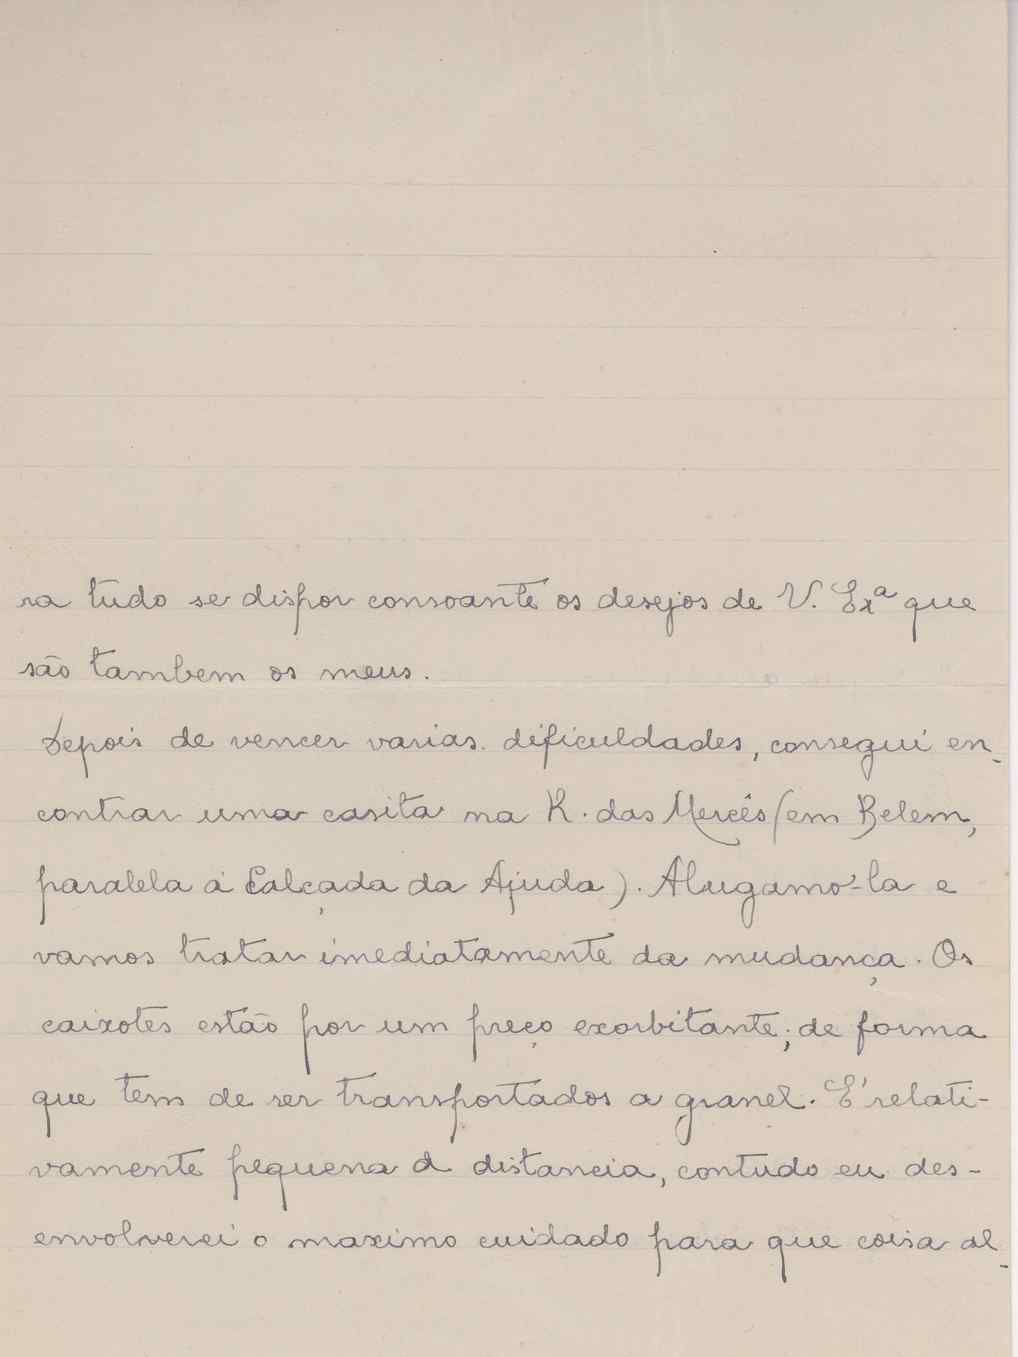 ra tudo se dispor consoante os desejos de V. Exª que
são tambem os meus.
Depois de vencer varias dificuldades, consegui en-
contrar uma casita na R. das Mercês (em Belem,
paralela á Calçada da Ajuda). Alugamo'-la e
vamos tratar imediatamente da mudança. Os
caixotes estão por um preço exorbitante; de forma
que tem de ser transportados a granel. É relati-
vamente pequena a distancia, contudo eu des-
envolverei o maximo cuidado para que coisa al-